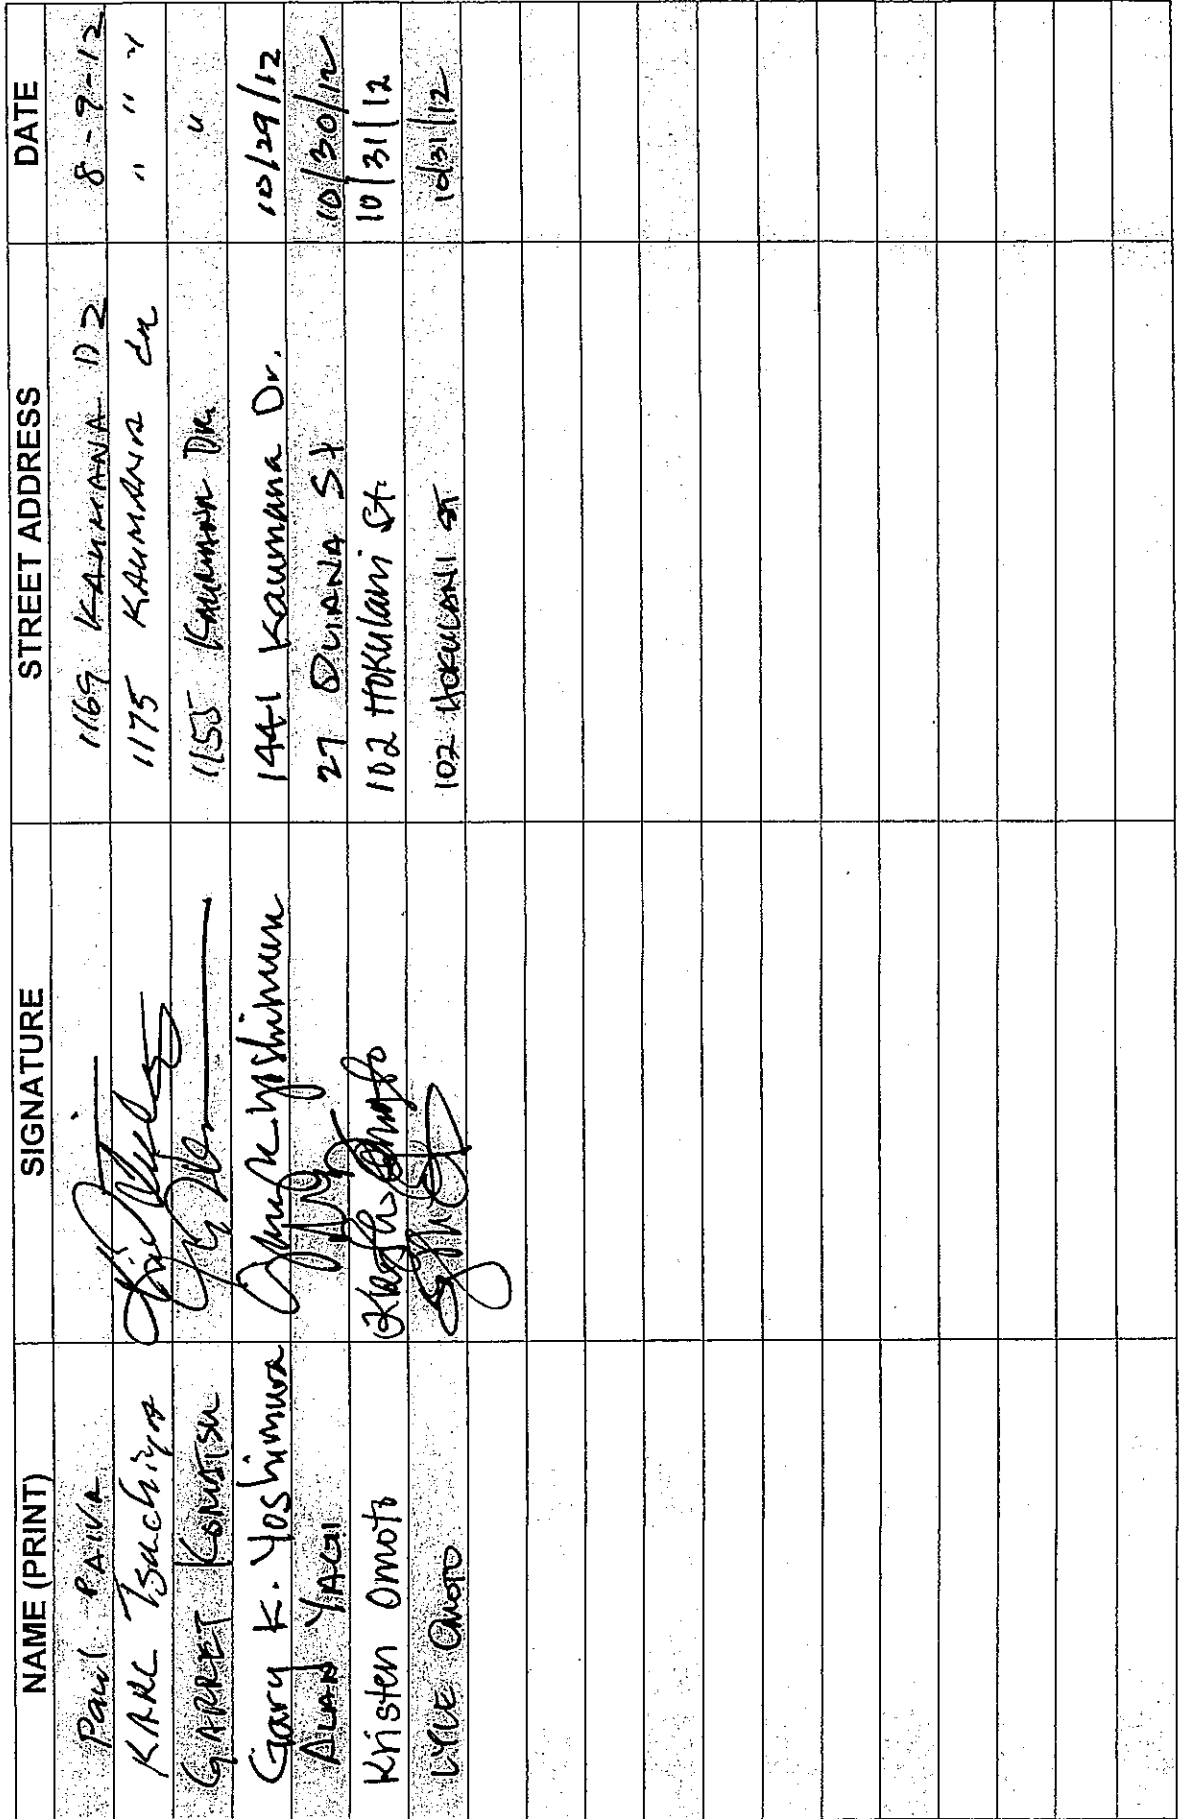 NAME (PRINT) SIGNATURE STREET ADDRESS DATE
Paul PAIVA 1169 KAUMANA DR 8-9-12
KARL Tsuchiya 1175 KAUMANA Dr " " "
GARRET KOMATSU 1155 KAUMANA DR. "
Gary K. Yoshimura Gary K Yoshimura 1441 Kaumana Dr. 10/29/12
ALAN YAGI 27 St 10/30/12
Kristen Omoto Kristen Omoto 102 Hokulani St. 10/31/12
LYLE OMOTO 102 HOKULANI ST 10/31/12